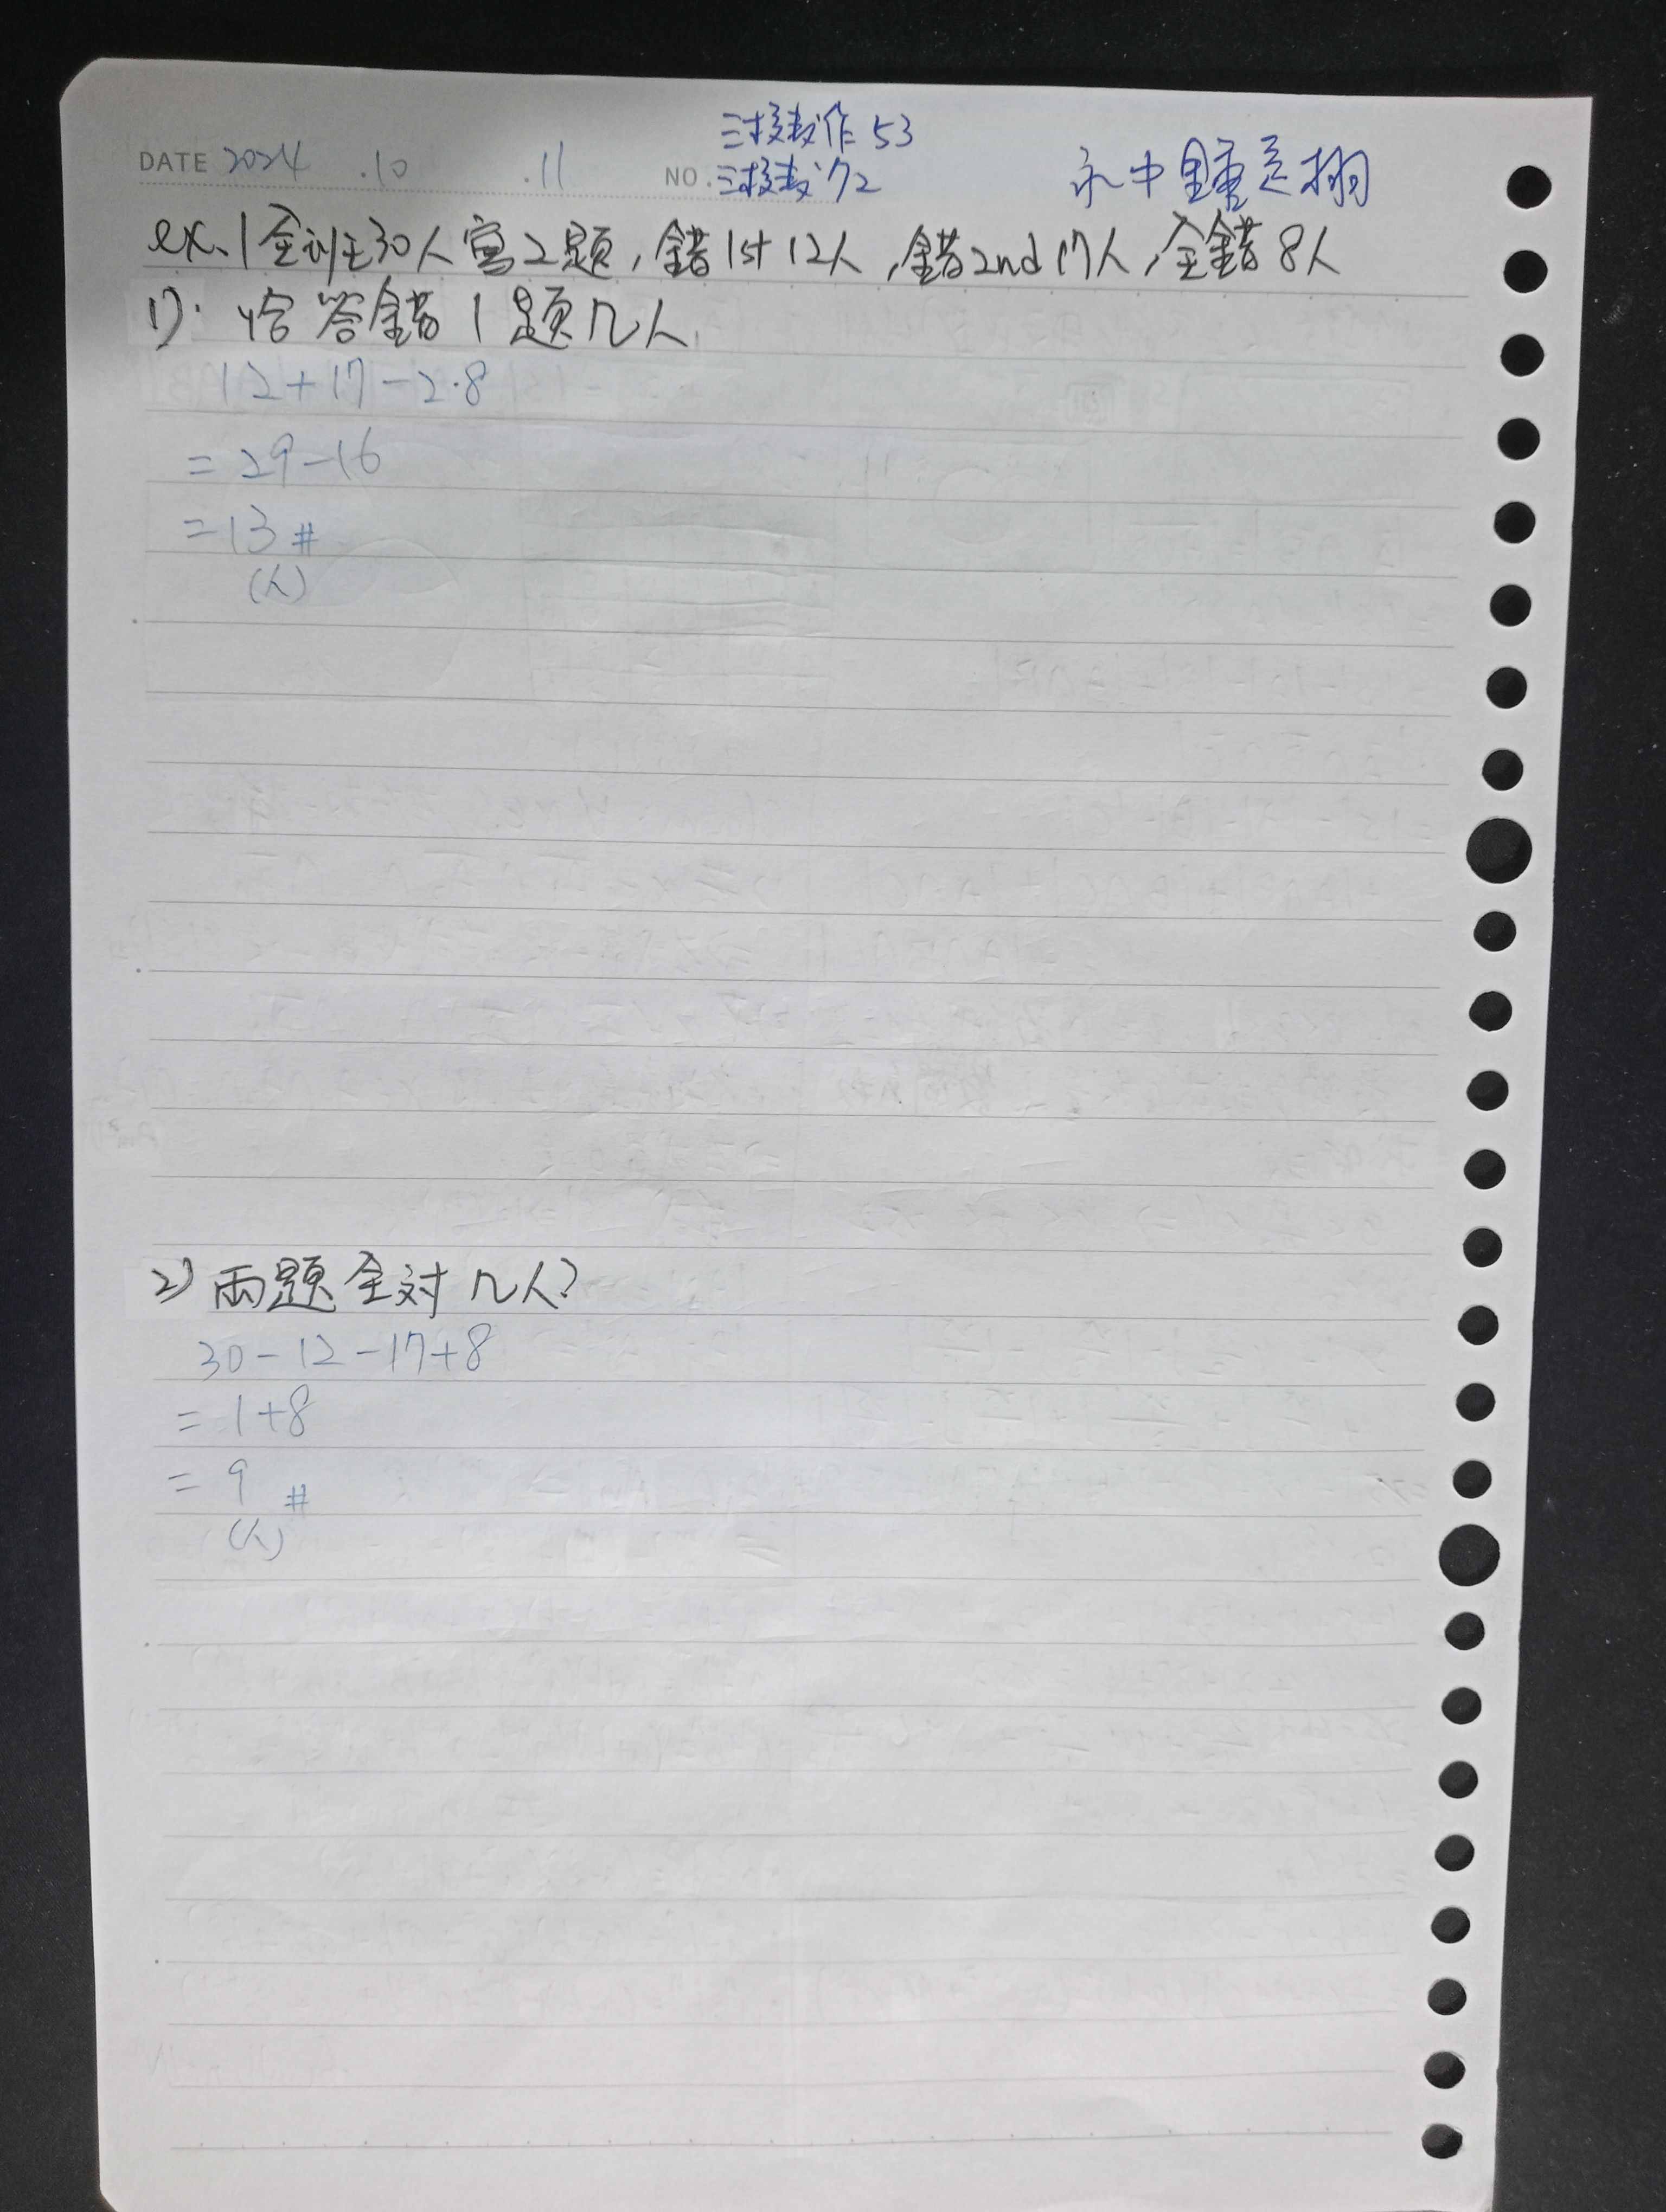 三技教作53
DATE 2024 .10 .11 NO. 三技教沙2
永中鍾
ex.1 全班30人寫2題,錯1st 12人,錯2nd 17人,全錯8人
1). 恰答錯1題几人
12+17-2·8
=29-16
=13 #
(人)
2) 兩題全対几人?
30-12-17+8
=1+8
=9 #
(人)